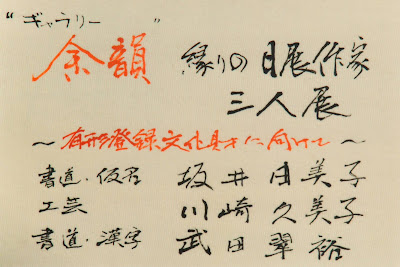 “ギャラリー ”
余韻 縁りの日展作家
三人展
～有形登録文化財に向けて～
書道・仮名 坂井由美子
工芸 川崎久美子
書道・漢字 武田翠裕